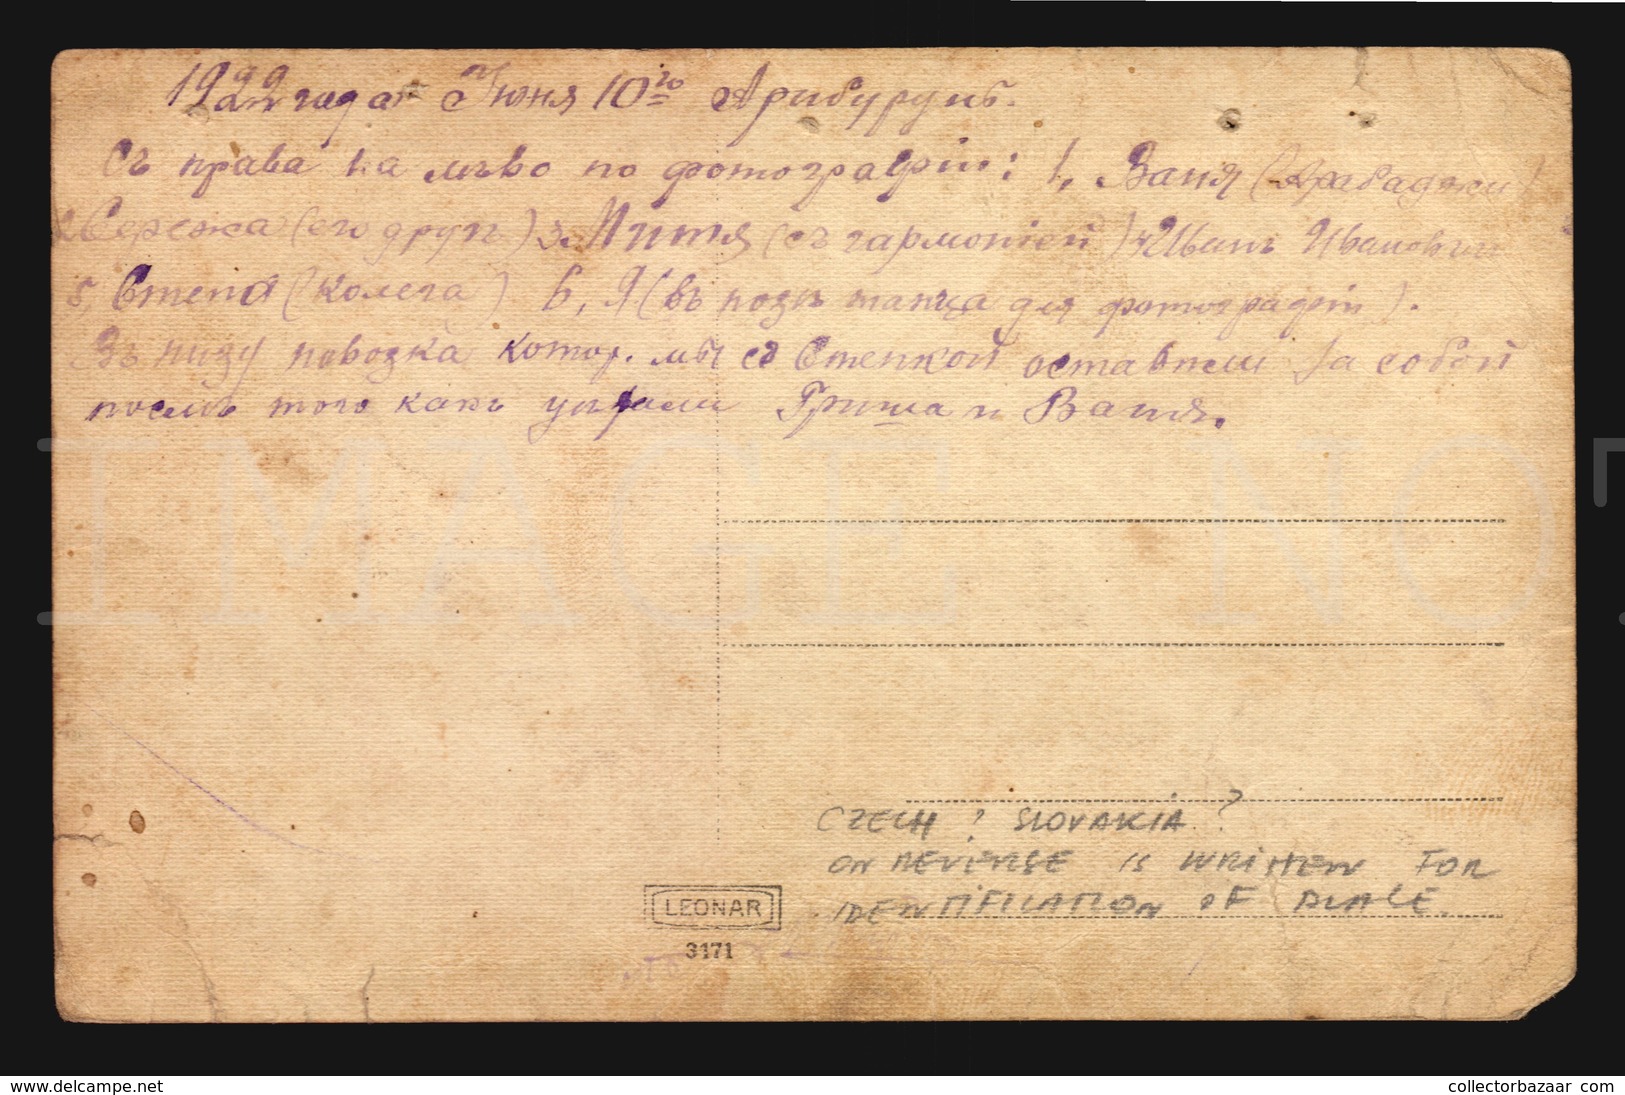 1922 года Июня 10го Арибурун.
Съ права на лѣво по фотографіи: 1, Ваня (Арабаджи)
2, Сережа (его другъ) 3, Митя (съ гармоніей) 4, Иванъ Ивановичъ
5, Степа (колега) 6, Я (въ позѣ танца для фотографіи).
Въ низу повозка котор. мы съ Степкой оставили за собой
послѣ того какъ уѣхали Гриша и Ваня.
IMAGE NOT
CZECH ? SLOVAKIA ?
ON REVERSE IS WRITTEN FOR
IDENTIFICATION OF PLACE.
LEONAR
3171
www.delcampe.net
collectorbazaar com